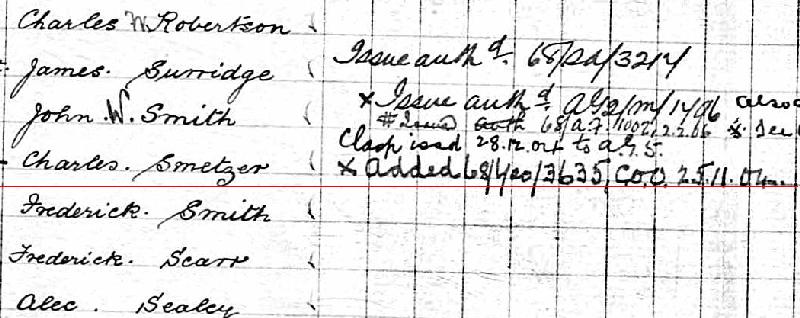 Charles W. Robertson
James. Surridge Issue auth d. 68/Sa/3214
John W. Smith × Issue auth d AG2/M/1496 also
# Issued auth 68/A.G./1002/2.2.06 &
Clasp issd 28.12.04 to A.G.5.
Charles. Smetzer × Added 68/Yeo/3635, C.O.O. 25.11.04
Frederick. Smith
Frederick. Scarr
Alec. Sealey